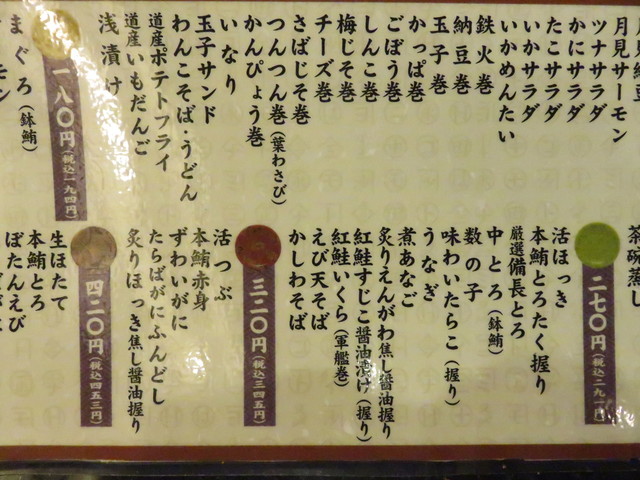 月見サーモン
ツナサラダ
かにサラダ
たこサラダ
いかサラダ
いかめんたい
鉄火巻
納豆巻
玉子巻
かっぱ巻
ごぼう巻
しんこ巻
梅じそ巻
チーズ巻
さばじそ巻
つんつん巻(葉わさび)
かんぴょう巻
いなり
玉子サンド
わんこそば・うどん
道産ポテトフライ
道産いもだんご
浅漬け
一八〇円(税込一九四円)
まぐろ(鉢鮪)
茶碗蒸し
二七〇円(税込二九一円)
活ほっき
本鮪とろたく握り
厳選備長とろ
中とろ(鉢鮪)
数の子
味わいたらこ(握り)
うなぎ
煮あなご
炙りえんがわ焦し醤油握り
紅鮭すじこ醤油漬け(握り)
紅鮭いくら(軍艦巻)
えび天そば
かしわそば
三二〇円(税込三四五円)
活つぶ
本鮪赤身
ずわいがに
たらばがにふんどし
炙りほっき焦し醤油握り
四二〇円(税込四五三円)
生ほたて
本鮪とろ
ぼたんえび